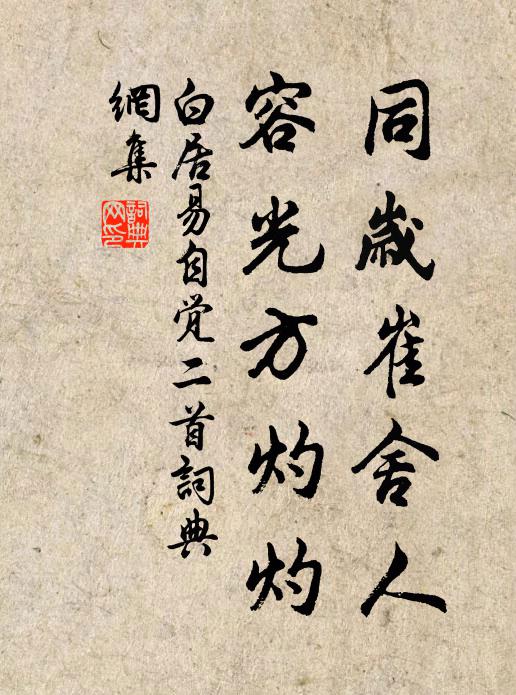 同歲崔舍人
容光方灼灼
白居易自觉二首詞典
網集
詞典
网印